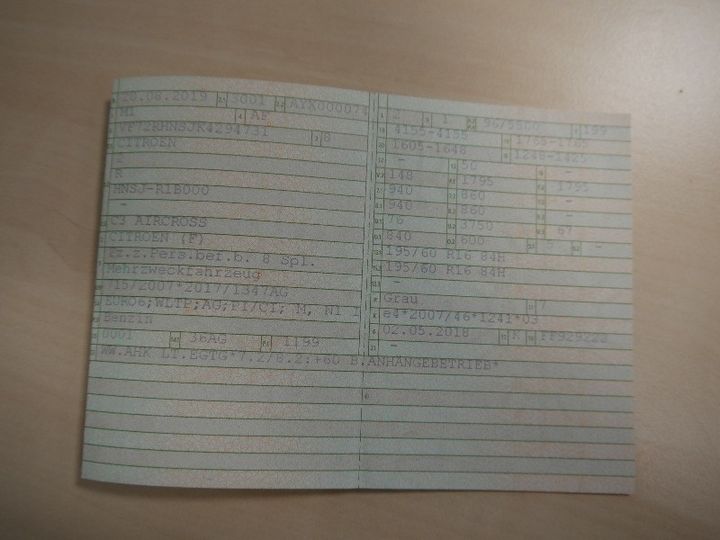 20.08.2019 3001 AYX000074
M1 4 AF
VF72RHNSJK4294731 8
CITROEN
2
R
HNSJ-R1B000
-
C3 AIRCROSS
CITROEN (F)
Fz.z.Pers.bef.b. 8 Spl.
Mehrzweckfahrzeug
715/2007*2017/1347AG
EURO6;WLTP;AG;PI/CI; M, N1 I
Benzin
0001 36AG 1199
WW.AHK LT.EGTG*7.2/8.2:+60 B.ANHÄNGEBETRIEB*
2 1 96/5500 199
4155-4155 1765-1765
1605-1648 1248-1425
- 50 -
148 1795 1795
940 860 -
940 860 -
76 3750 67
840 600 5 -
195/60 R16 84H
195/60 R16 84H
-
Grau 7
e4*2007/46*1241*03
02.05.2018 K
-